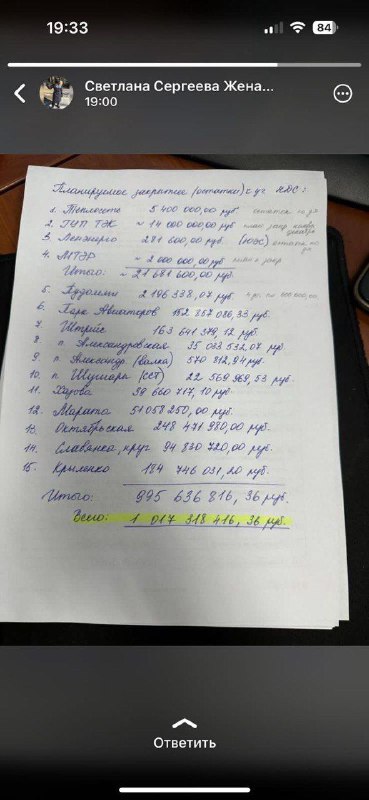 19:33
84
Светлана Сергеева Жена...
19:00
Планируемое закрытие (остатки) с уч НДС:
1. Теплосеть 5 400 000,00 руб. остаток по
2. ГУП ТЭК ~ 14 000 000,00 руб план закр ноябрь декабрь
3. Ленэнерго 281 600,00 руб. остаток по
4. МТЭР ~ 2 000 000,00 руб закр
Итого: ~ 21 681 600,00 руб.
5. 2 196 338,07 руб.
6. Парк Авиаторов 152 857 086,33 руб.
7. 163 641 379,12 руб.
8. п. Александровская 35 033 532,07 руб.
9. п. Александр (валка) 570 812,94 руб.
10. п Шушара (ССТ) 22 569 969,53 руб.
11. 39 660 717,10 руб.
12. Марата 51 058 250,00 руб.
13. Октябрьская 248 471 980,00 руб.
14. Славянка, круг 94 830 720,00 руб.
15. Крыленко 184 746 031,20 руб.
Итого: 995 636 816,36 руб.
Всего: 1 017 318 416,36 руб.
Ответить